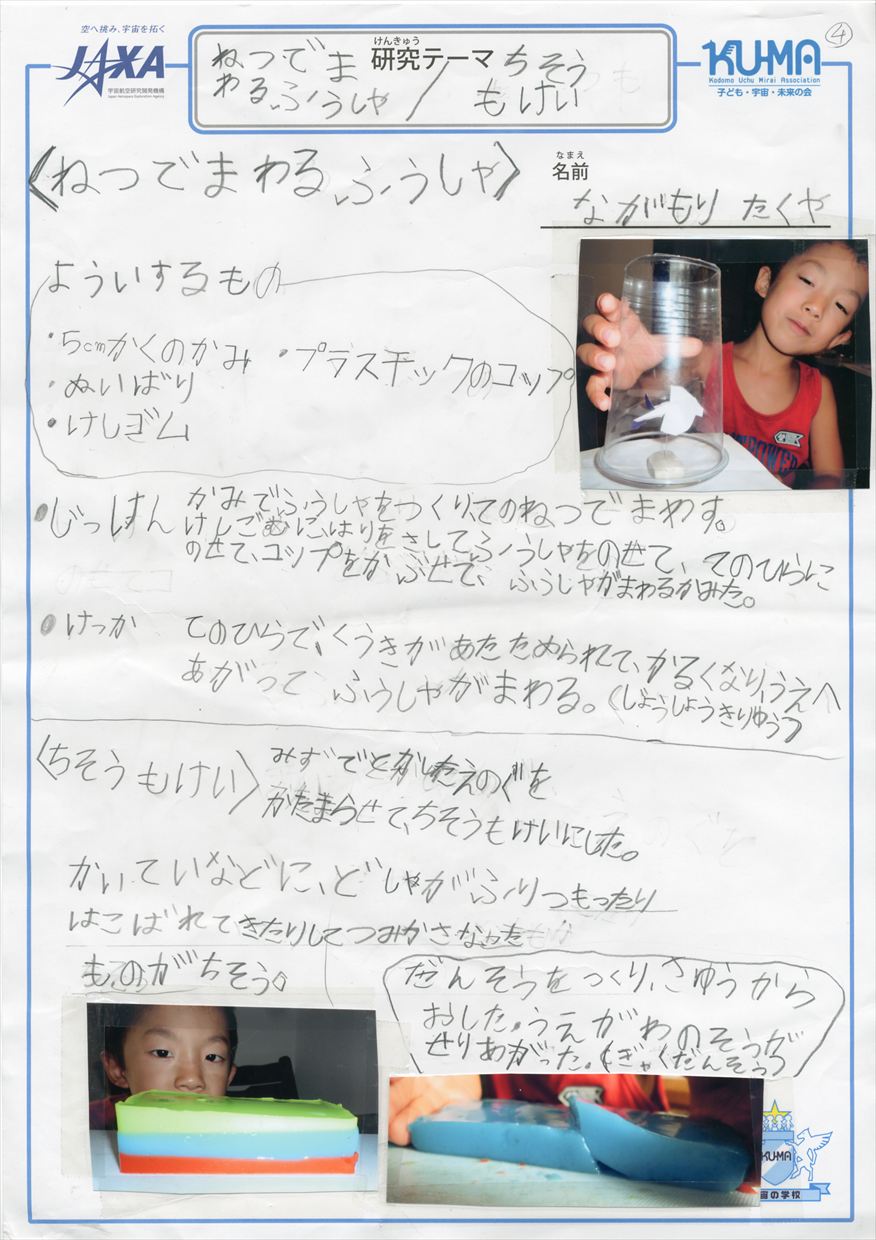 ④
空へ挑み、宇宙を拓く
JAXA
宇宙航空研究開発機構
Japan Aerospace Exploration Agency
けんきゅう
研究テーマ
ねつでま
わるふうしゃ／
ちそう
もけい
KU-MA
Kodomo Uchu Mirai Association
子ども・宇宙・未来の会
〈ねつでまわるふうしゃ〉
なまえ
名前
ながもり たくや
よういするもの
・5cmかくのかみ ・プラスチックのコップ
・ぬいばり
・けしゴム
・じっけん かみでふうしゃをつくり、てのねつでまわす。
けしごむに、はりをさしてふうしゃをのせて、てのひらに
のせて、コップをかぶせで、ふうしゃがまわるかみた。
・けっか てのひらで、くうきがあたためられて、かるくなり、うえへ
あがって、ふうしゃがまわる。(じょうしょうきりゅう)
〈ちそうもけい〉 みずでとかしたえのぐを
かたまらせて、ちそうもけいにした。
かいていなどに、どしゃがふりつもったり
はこばれてきたりしてつみかさなった
ものがちそう。
だんそうをつくり、さゆうから
おした。うえがわのそうが
せりあがった。(ぎゃくだんそう)
KU-MA
宙の学校